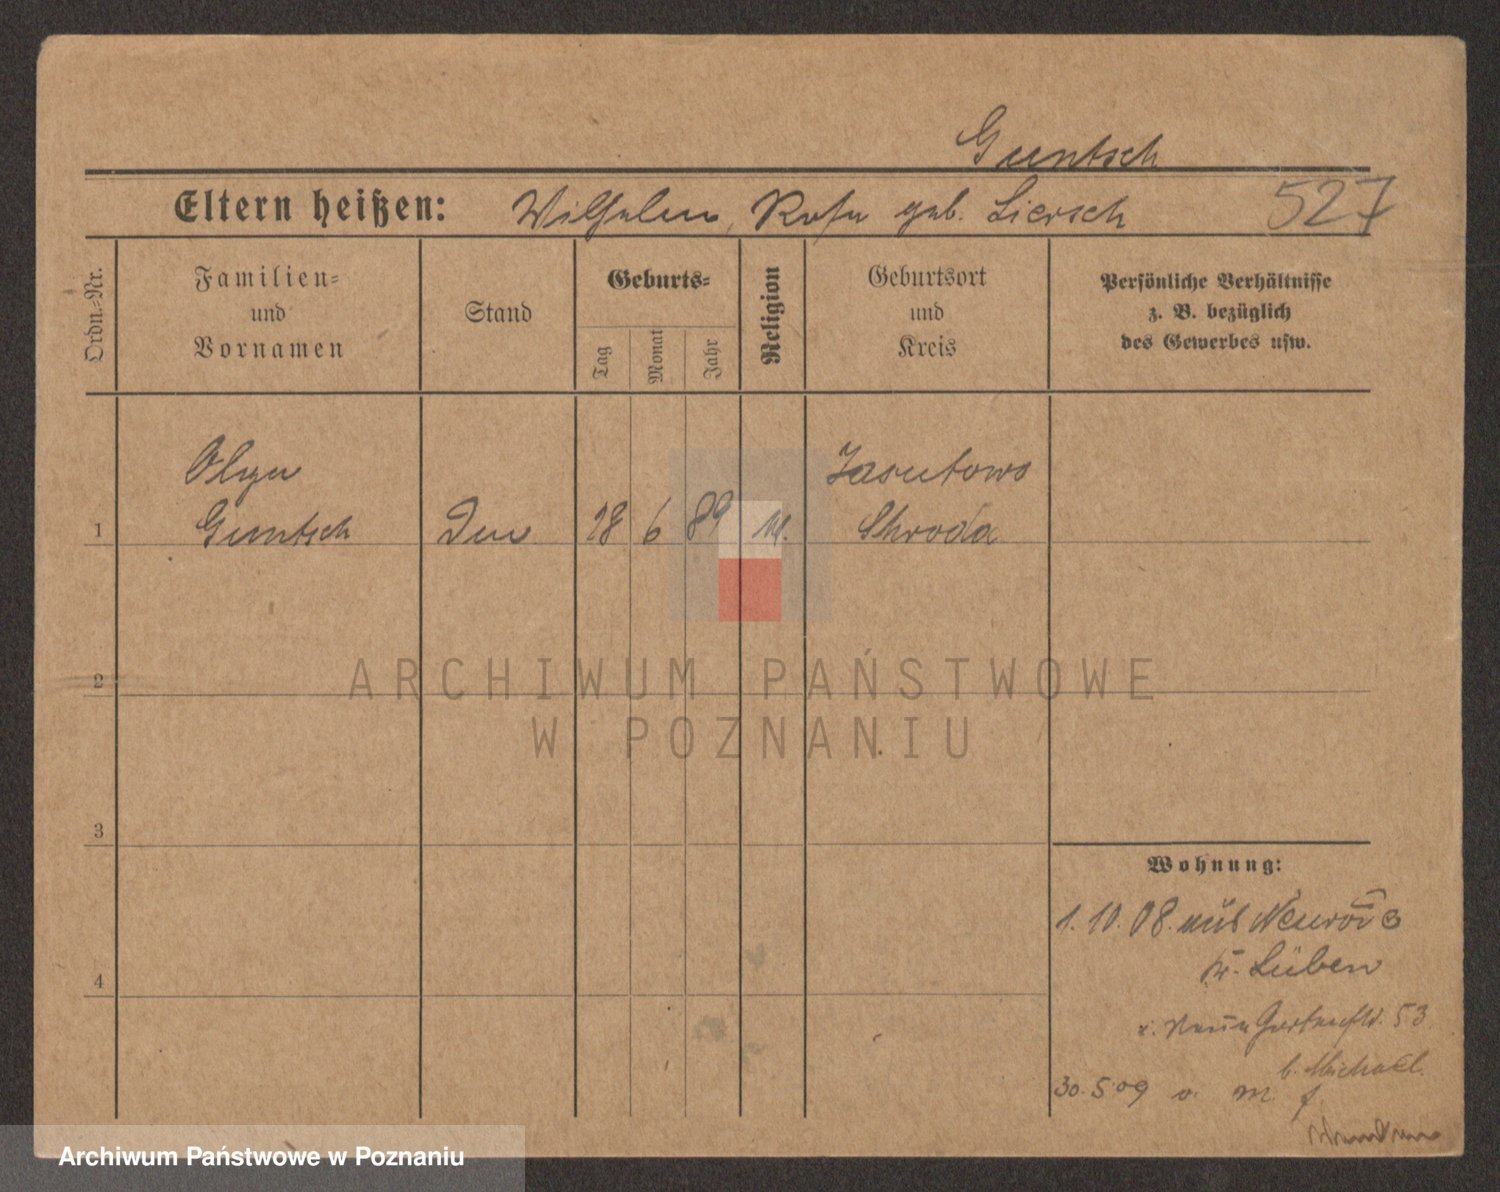 Guntsch
Eltern heißen: Wilhelm, Rosa geb. Liersch 527
Ordn.-Nr.
Familien-
und
Vornamen
Stand
Geburts-
Tag
Monat
Jahr
Religion
Geburtsort
und
Kreis
Persönliche Verhältnisse
z. B. bezüglich
des Gewerbes usw.
Olga
Jasutowo
1 Guntsch 28 6 89 Schroda
2
3
4
Wohnung:
1. 10. 08. aus
Kr. Lüben
Gartenstr. 53
b. Michael
30. 5. 09
ARCHIWUM PAŃSTWOWE
W POZNANIU
Archiwum Państwowe w Poznaniu